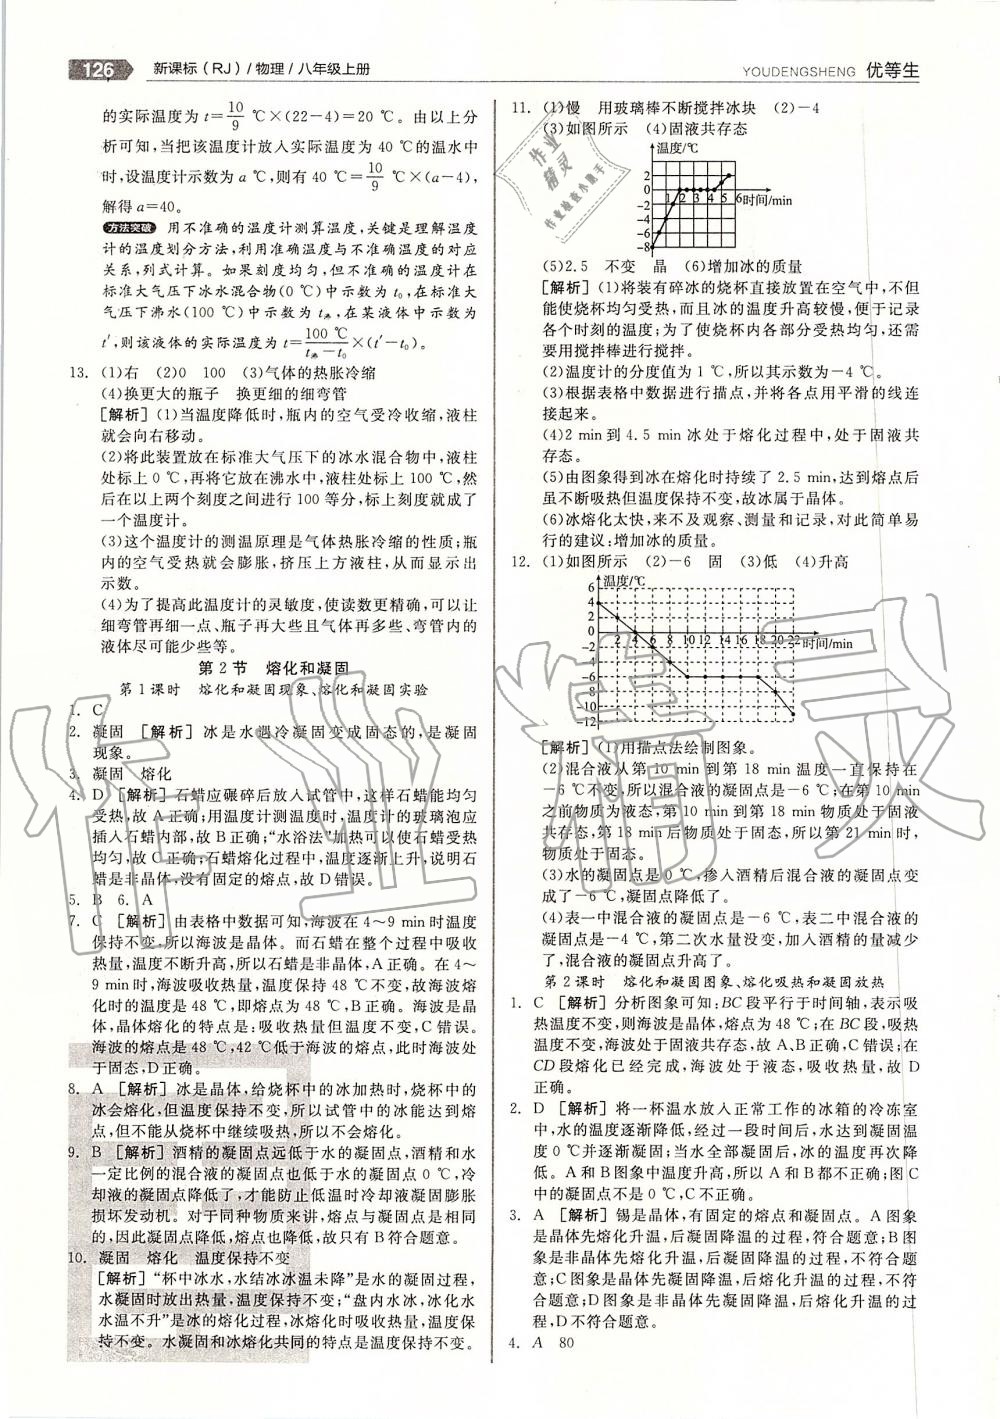 126 新课标(RJ)/物理/八年级上册
YOUDENGSHENG 优等生
的实际温度为 t=10/9 ℃×(22-4)=20 ℃。由以上分
析可知,当把该温度计放入实际温度为 40 ℃的温水中
时,设温度计示数为 a ℃,则有 40 ℃=10/9 ℃×(a-4),
解得 a=40。
方法突破 用不准确的温度计测算温度,关键是理解温度
计的温度划分方法,利用准确温度与不准确温度的对应
关系,列式计算。如果刻度均匀,但不准确的温度计在
标准大气压下冰水混合物(0 ℃)中示数为 t₀,在标准大
气压下沸水(100 ℃)中示数为 t沸,在某液体中示数为
t′,则该液体的实际温度为 t=100 ℃/(t沸-t₀)×(t′-t₀)。
13. (1)右 (2)0 100 (3)气体的热胀冷缩
(4)换更大的瓶子 换更细的细弯管
[解析] (1)当温度降低时,瓶内的空气受冷收缩,液柱
就会向右移动。
(2)将此装置放在标准大气压下的冰水混合物中,液柱
处标上 0 ℃,再将它放在沸水中,液柱处标上 100 ℃,然
后在以上两个刻度之间进行 100 等分,标上刻度就成了
一个温度计。
(3)这个温度计的测温原理是气体热胀冷缩的性质;瓶
内的空气受热就会膨胀,挤压上方液柱,从而显示出
示数。
(4)为了提高此温度计的灵敏度,使读数更精确,可以让
细弯管再细一点、瓶子再大些且气体再多些、弯管内的
液体尽可能少些等。
第 2 节 熔化和凝固
第 1 课时 熔化和凝固现象、熔化和凝固实验
1. C
2. 凝固 [解析] 冰是水遇冷凝固变成固态的,是凝固
现象。
3. 凝固 熔化
4. D [解析] 石蜡应碾碎后放入试管中,这样石蜡能均匀
受热,故 A 正确;用温度计测温度时,温度计的玻璃泡应
插入石蜡内部,故 B 正确;“水浴法”加热可以使石蜡受热
均匀,故 C 正确;石蜡熔化过程中,温度逐渐上升,说明石
蜡是非晶体,没有固定的熔点,故 D 错误。
5. B 6. A
7. C [解析] 由表格中数据可知,海波在 4～9 min 时温度
保持不变,所以海波是晶体。而石蜡在整个过程中吸收
热量,温度不断升高,所以石蜡是非晶体,A 正确。在 4～
9 min 时,海波吸收热量,温度保持 48 ℃不变,故海波熔
化时的温度是 48 ℃,即熔点为 48 ℃,B 正确。海波是晶
体,晶体熔化的特点是:吸收热量但温度不变,C 错误。
海波的熔点是 48 ℃,42 ℃低于海波的熔点,此时海波处
于固态,D 正确。
8. A [解析] 冰是晶体,给烧杯中的冰加热时,烧杯中的
冰会熔化,但温度保持不变,所以试管中的冰能达到熔
点,但不能从烧杯中继续吸热,所以不会熔化。
9. B [解析] 酒精的凝固点远低于水的凝固点,酒精和水
一定比例的混合液的凝固点也低于水的凝固点 0 ℃,冷
却液的凝固点降低了,才能防止低温时冷却液凝固膨胀
损坏发动机。对于同种物质来讲,熔点与凝固点是相同
的,因此凝固点降低,熔点也降低,故只有 B 符合题意。
10. 凝固 熔化 温度保持不变
[解析] “杯中冰水,水结冰冰温未降”是水的凝固过程,
水凝固时放出热量,温度保持不变;“盘内水冰,冰化水
水温不升”是冰的熔化过程,冰熔化时吸收热量,温度保
持不变。水凝固和冰熔化共同的特点是温度保持不变。
11. (1)慢 用玻璃棒不断搅拌冰块 (2)-4
(3)如图所示 (4)固液共存态
温度/℃
2
0 1 2 3 4 5 6 时间/min
-2
-4
-6
-8
(5)2.5 不变 晶 (6)增加冰的质量
[解析] (1)将装有碎冰的烧杯直接放置在空气中,不但
能使烧杯均匀受热,而且冰的温度升高较慢,便于记录
各个时刻的温度;为了使烧杯内各部分受热均匀,还需
要用搅拌棒进行搅拌。
(2)温度计的分度值为 1 ℃,所以其示数为-4 ℃。
(3)根据表格中数据进行描点,并将各点用平滑的线连
接起来。
(4)2 min 到 4.5 min 冰处于熔化过程中,处于固液共
存态。
(5)由图象得到冰在熔化时持续了 2.5 min,达到熔点后
虽不断吸热但温度保持不变,故冰属于晶体。
(6)冰熔化太快,来不及观察、测量和记录,对此简单易
行的建议:增加冰的质量。
12. (1)如图所示 (2)-6 固 (3)低 (4)升高
温度/℃
6
4
2
0 2 4 6 8 10 12 14 16 18 20 22 时间/min
-2
-4
-6
-8
-10
-12
[解析] (1)用描点法绘制图象。
(2)混合液从第 10 min 到第 18 min 温度一直保持在
-6 ℃不变,所以混合液的凝固点是-6 ℃;在第 10 min
之前物质为液态,第 10 min 到第 18 min 物质处于固液
共存态,第 18 min 后物质处于固态,所以第 21 min 时,
物质处于固态。
(3)水的凝固点是 0 ℃,掺入酒精后混合液的凝固点变
成了-6 ℃,凝固点降低了。
(4)表一中混合液的凝固点是-6 ℃,表二中混合液的
凝固点是-4 ℃,第二次水量没变,加入酒精的量减少
了,混合液的凝固点升高了。
第 2 课时 熔化和凝固图象、熔化吸热和凝固放热
1. C [解析] 分析图象可知:BC 段平行于时间轴,表示吸
热温度不变,则海波是晶体,熔点为 48 ℃;在 BC 段,吸热
温度不变,海波处于固液共存态,故 A、B 正确,C 错误;在
CD 段熔化已经完成,海波处于液态,吸收热量,故 D
正确。
2. D [解析] 将一杯温水放入正常工作的冰箱的冷冻室
中,水的温度逐渐降低,经过一段时间后,水达到凝固点
0 ℃并逐渐凝固;当水全部凝固后,冰的温度再次降
低。A 和 B 图象中温度升高,所以 A 和 B 都不正确;图 C
中的凝固点不是 0 ℃,C 不正确。
3. A [解析] 锡是晶体,有固定的熔点和凝固点。A 图象
是晶体先熔化升温,后凝固降温的过程,符合题意;B 图
象是非晶体先熔化升温,后凝固降温的过程,不符合题
意;C 图象是晶体先凝固降温,后熔化升温的过程,不符
合题意;D 图象是非晶体先凝固降温,后熔化升温的过
程,D 不符合题意。
4. A 80
作业
精灵
作业检查小助手
作业精灵